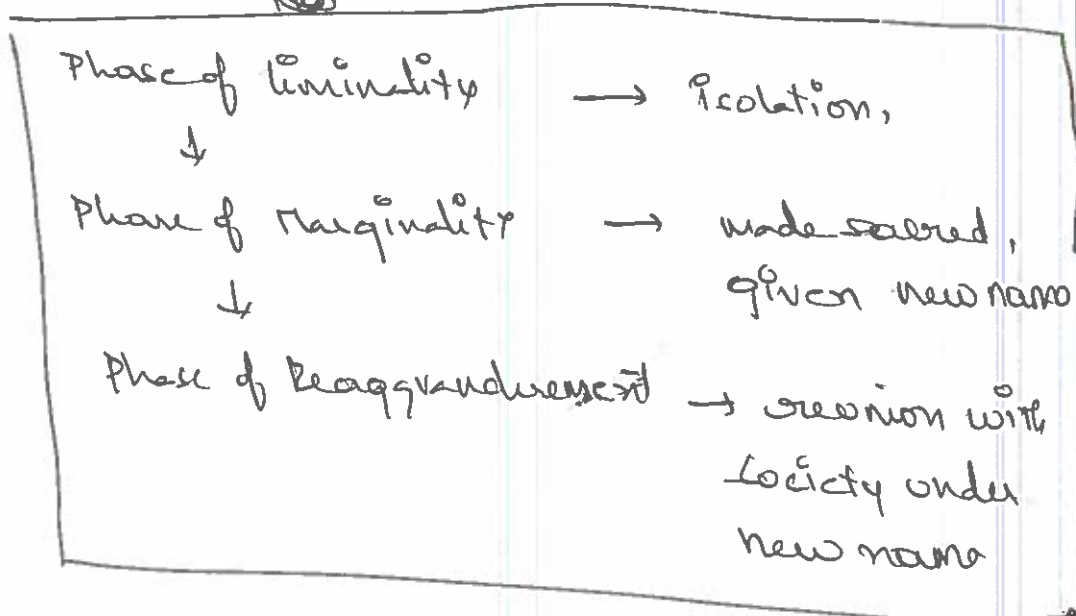 Phase of liminality → isolation,
↓
Phase of Marginality → made sacred,
given new name
↓
Phase of → reunion with
society under
new name